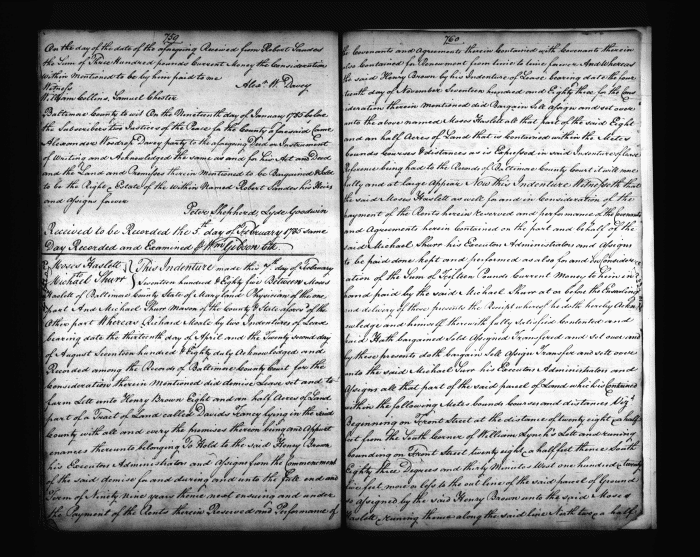 759
On the day of the date of the aforegoing Received from Robert Sanders
the Sum of Three Hundred pounds Current Money the Consideration
within Mentioned to be by him paid to me
Witness Alexr. W. Davey
William Collins, Samuel Chester
Baltimore County to wit On the Nineteenth day of January 1785 before
the Subscribers two Justices of the Peace for the County aforesaid Came
Alexander Woodrop Davey party to the aforegoing Deed or Instrument
of Writing and Acknowledged the same as and for his Act and Deed
and the Land and Premises therein Mentioned to be Bargained & Sold
to be the Right & Estate of the within Named Robert Sanders his Heirs
and Assigns forever
Peter Shepherd, Lyde Goodwin
Received to be Recorded the 5th day of February 1785 same
Day Recorded and Examined Wm Gibson Clk
Moses Haslett
To
Michael Shurr
This Indenture made this 7th day of February
Seventeen hundred & Eighty five Between Moses
Haslet of Baltimore County State of Maryland Physician of the one
part And Michael Shurr Mason of the County & State aforesd of the
Other part Whereas Richard Moale by two Indentures of Lease
bearing date the thirteenth day of April and the Twenty second day
of August Seventeen hundred & Eighty duly Acknowledged and
Recorded among the Records of Baltimore County Court for the
Consideration therein Mentioned did demise Lease set and to
farm Lett unto Henry Brown Eight and an half Acres of Land
part of a Tract of Land called Davids Fancy lying in the said
County with all and every the premises thereon being and Appurt
enances thereunto belonging To Hold to the said Henry Brown
his Executors Administrators and Assigns from the Commencement
of the said demise for and during and unto the full end and
Term of Ninety Nine years thence next ensuing and under
the Payment of the Rents therein Reserved and Performance of
760
the Covenants and Agreements therein Contained with Covenants therein
also Contained for Renewment from time to time forever And Whereas
the said Henry Brown by his Indenture of Lease bearing date the four
teenth day of November Seventeen hundred and Eighty three for the Con
sideration therein mentioned did Bargain Sell Assign and set over
unto the above named Moses Haslett all that part of the said Eight
and an half Acres of Land that is Contained within the Metes
bounds Courses & distances as is Expressed in said Indenture of Lease
Reference being had to the Records of Baltimore County Court it will more
fully and at large Appear Now this Indenture Witnesseth that
the said Moses Haslett as well for and in Consideration of the
payment of the Rents herein Reserved and performance of the Covenants
and Agreements herein Contained on the part and behalf of the
said Michael Shurr his Executors Administrators and Assigns
to be paid done kept and performed as also for and in Consider
ation of the Sum of Fifteen Pounds Current Money to him in
hand paid by the said Michael Shurr at or before the Ensealing
and delivery of these presents the Receipt whereof he doth hereby Ackno
wledge and himself therewith fully Satisfied Contented and
paid Hath bargained Sold Assigned Transfered and set over and
by these presents doth bargain Sell Assign Transfer and sett over
unto the said Michael Shurr his Executors Administrators and
Assigns all that part of the said parcel of Land which is Contained
within the following Metes bounds Courses and distances Vizt
Beginning on Front Street at the distance of twenty eight & a half
feet from the South Corner of William Lynch's Lott and running
bounding on Front Street twenty eight & a half feet thence South
Eighty three Degrees and thirty Minutes West one hundred & twenty
two feet more or less to the out line of the said parcel of Ground
so Assigned by the said Henry Brown unto the said Moses
Haslett runing thence along the said line North two & a half